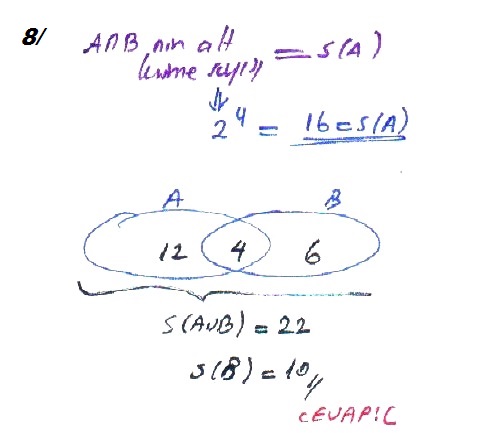 8/ A∩B nin alt = S(A)
küme sayısı
⇓
2⁴ = 16 = S(A)
A B
12 4 6
S(A∪B) = 22
S(B) = 10//
CEVAP: C